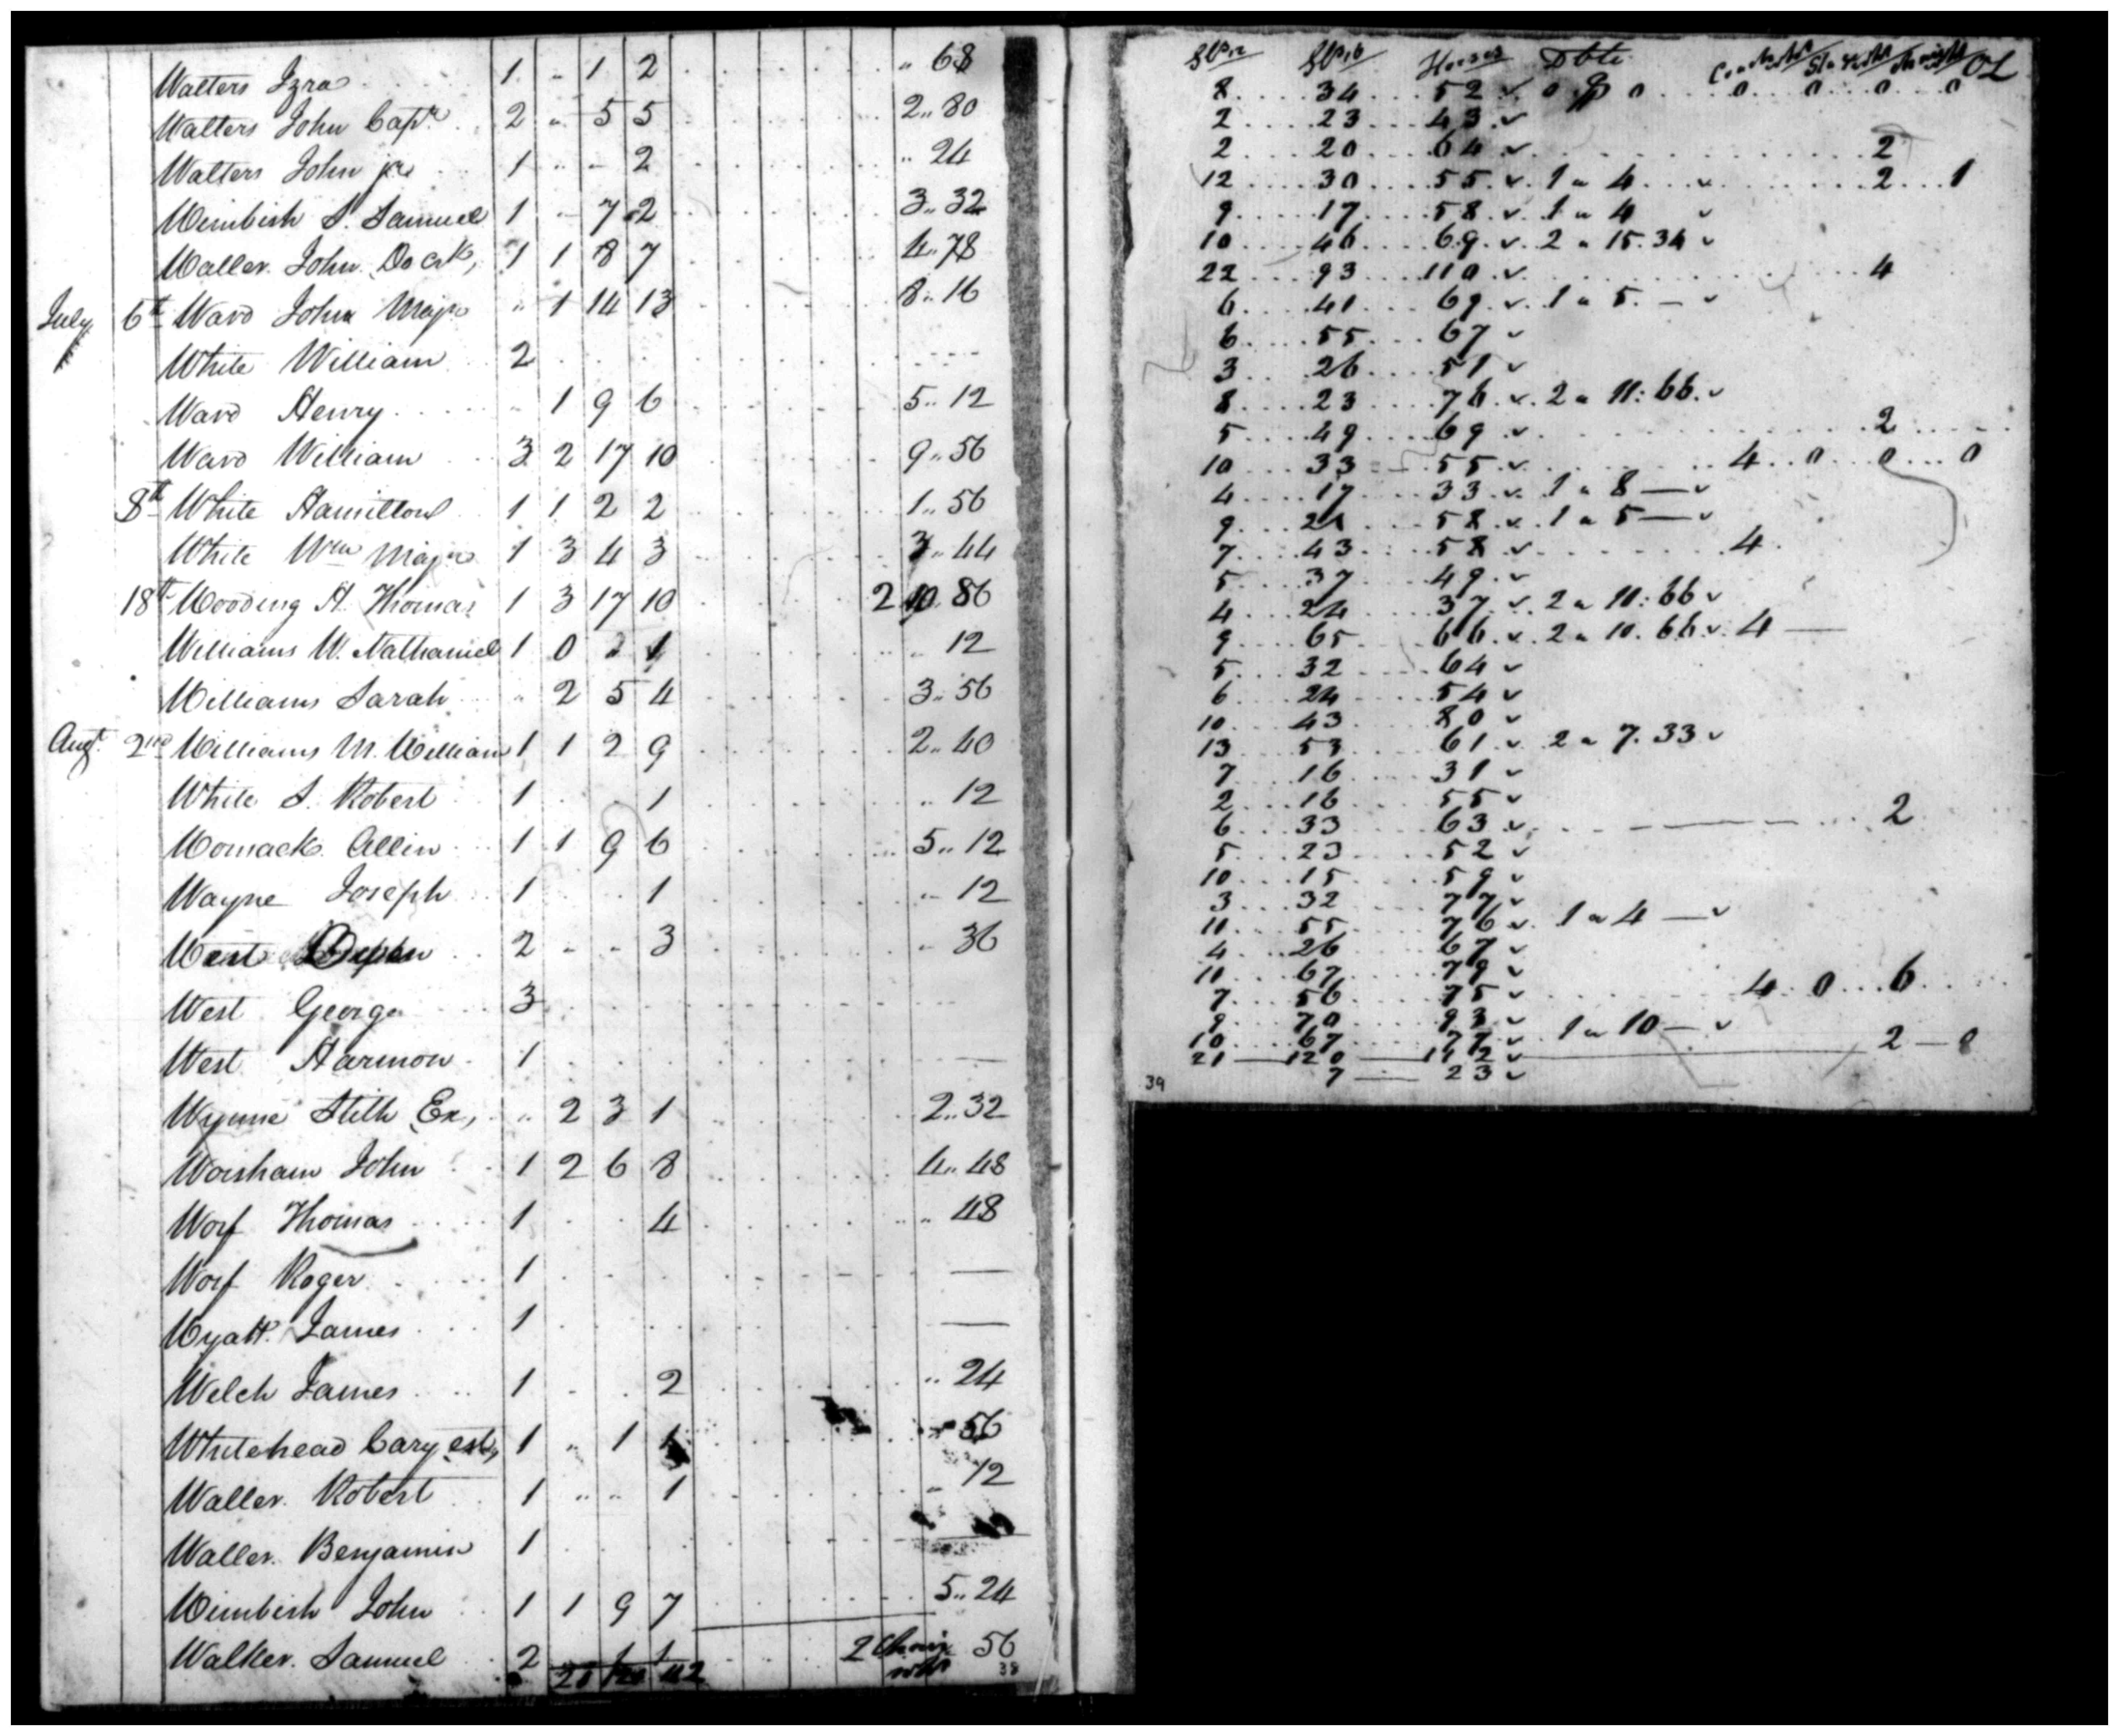 Walters Izra 1 .. 1 2 .. 68
Walters John Capt. 2 .. 5 5 2.. 80
Walters John jr 1 .. - 2 .. 24
Wimbish S. Samuel 1 - 7 2 3.. 32
Waller John Dock, 1 1 8 7 4.. 78
July 6th Ward John Majr .. 1 14 13 8.. 16
White William 2
Ward Henry .. 1 9 6 5.. 12
Ward William 3 2 17 10 9.. 56
8th White Hamilton 1 1 2 2 1.. 56
White Wm Majr 1 3 4 3 3.. 44
18th Wooding H. Thomas 1 3 17 10 2 10.. 86
Williams W. Nathaniel 1 0 1 .. 12
Williams Sarah .. 2 5 4 3.. 56
Augt 2nd Williams M. William 1 1 2 9 2.. 40
White S. Robert 1 1 .. 12
Womack Allin 1 1 9 6 5.. 12
Wayne Joseph 1 1 .. 12
West 2 - - 3 .. 36
West George 3
West Harmon 1
Wynne Stith Ex, .. 2 3 1 2.. 32
Worsham John 1 2 6 8 4.. 48
Worf Thomas 1 4 .. 48
Worf Roger 1 —
Wyatt James 1 —
Welch James 1 2 .. 24
Whitehead Cary est, 1 .. 1 1 56
Waller Robert 1 .. .. 1 .. 12
Waller Benjamin 1
Wimbish John 1 1 9 7 5.. 24
Walker Samuel 2 1 1 2 56
38
Horses
8 34 52 ✓ 0 0 0 0 0 0
2 23 43 ✓
2 20 64 ✓ 2
12 30 55 ✓ 1 " 4 ✓ 2 1
9 17 58 ✓ 1 " 4 ✓
10 46 69 ✓ 2 " 15.34 ✓
22 93 110 ✓ 4
6 41 69 ✓ 1 " 5. — ✓
6 55 67 ✓
3 26 51 ✓
8 23 76 ✓ 2 " 11:66 ✓
5 49 69 ✓ 2
10 33 55 ✓ 4 0 0 0
4 17 33 ✓ 1 " 8 — ✓
9 21 58 ✓ 1 " 5 — ✓
7 43 58 ✓ 4
5 37 49 ✓
4 24 37 ✓ 2 " 11:66 ✓
9 65 66 ✓ 2 " 10.66 ✓ 4 —
5 32 64 ✓
6 24 54 ✓
10 43 80 ✓
13 53 61 ✓ 2 " 7.33 ✓
7 16 31 ✓
2 16 55 ✓
6 33 63 ✓ 2
5 23 52 ✓
10 15 59 ✓
3 32 77 ✓
11 55 76 ✓ 1 " 4 — ✓
4 26 67 ✓
11 67 79 ✓
7 56 75 ✓ 4 0 6
9 70 93 ✓
10 67 77 ✓ 1 " 10 — ✓
21 — 120 — 142 ✓ 2 — 0
7 — 23 ✓
39